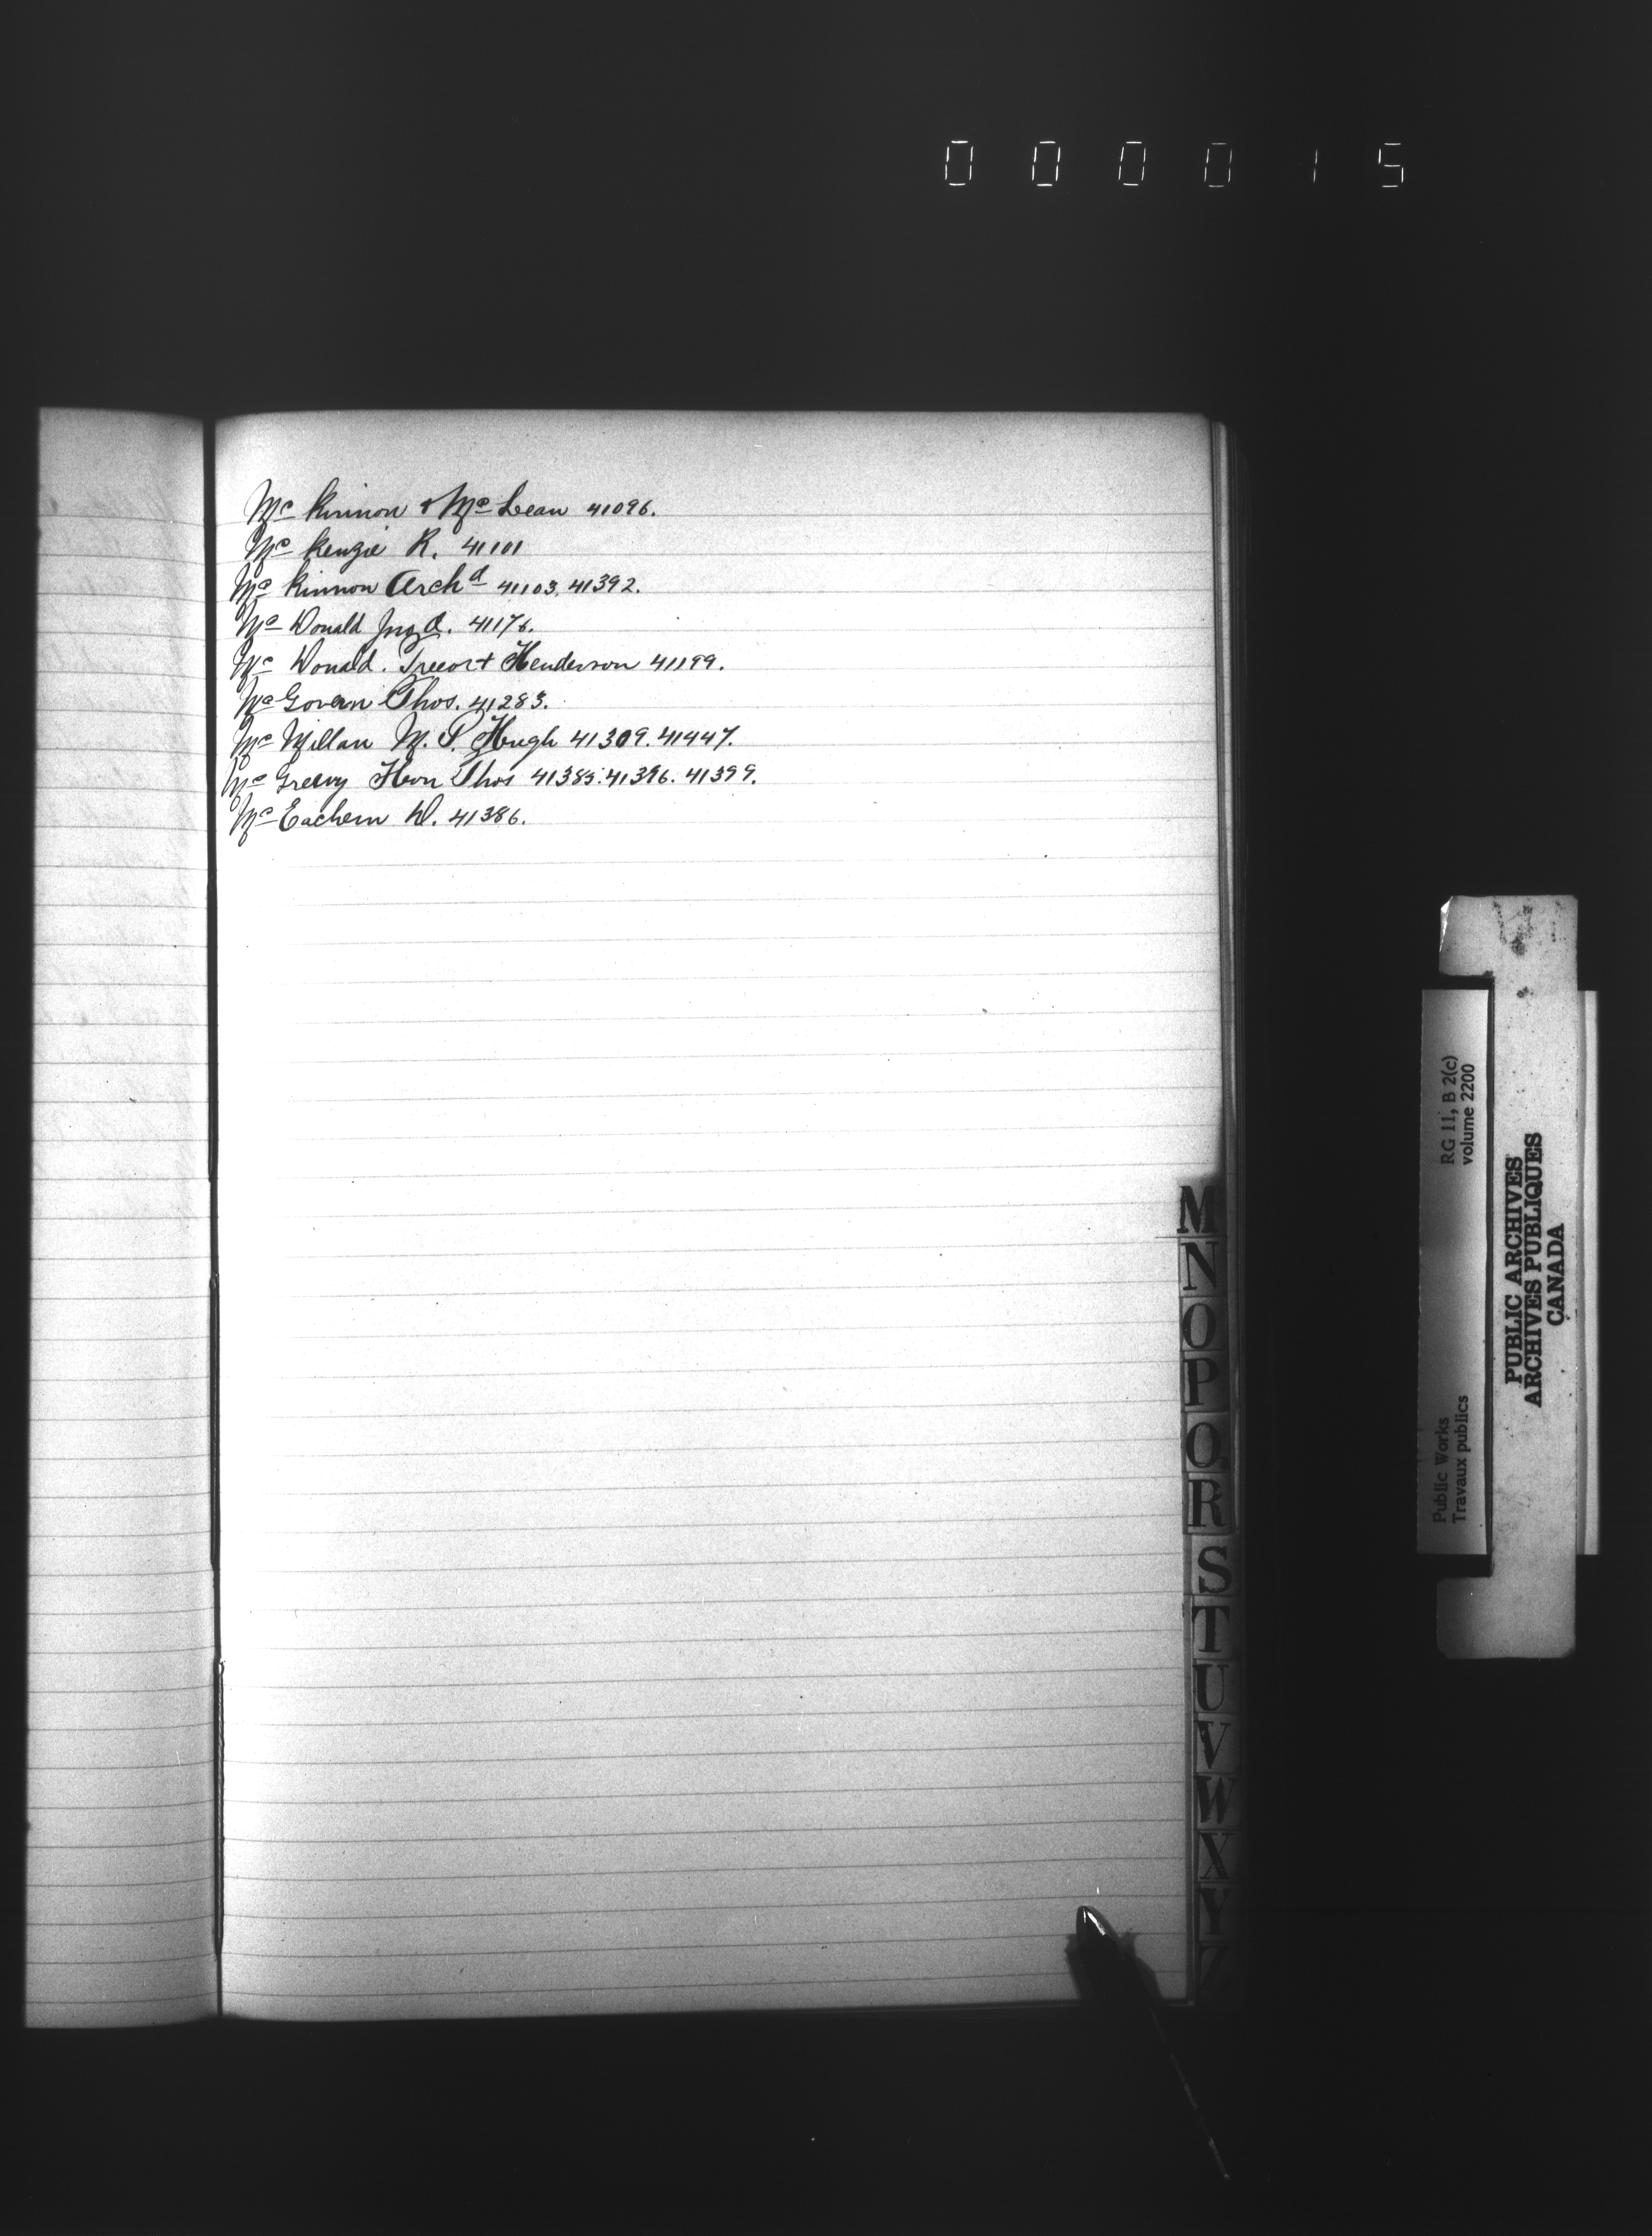 000015
Mc Kinnon & Mc Lean 41096.
Mc Kenzie R. 41101
Mc Kinnon Archd 41103, 41392.
Mc Donald Jno A. 41176.
Mc Donald. Henderson 41199.
Mc Govern Thos. 41283.
Mc Millan M. P. Hugh 41309. 41447.
Mc Greevy Hon Thos 41385. 41396. 41399.
Mc Eachern D. 41386.
M
N
O
P
Q
R
S
T
U
V
W
X
Y
Z
Public Works
Travaux publics
RG 11, B 2(c)
volume 2200
PUBLIC ARCHIVES
ARCHIVES PUBLIQUES
CANADA